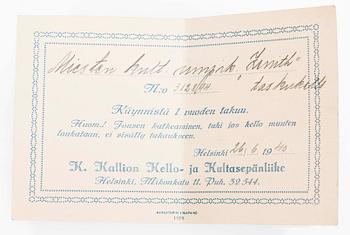 Miesten kult. umpik "Zenith"
N:o 3128194 taskukello
Käynnistä 1 vuoden takuu.
Huom.! Jousen katkeaminen, tahi jos kello muuten
loukataan, ei sisälly takaukseen.
Helsinki 26/6 1940
K. Kallion Kello- ja Kultasepänliike
Helsinki, Mikonkatu 11. Puh. 39 544.